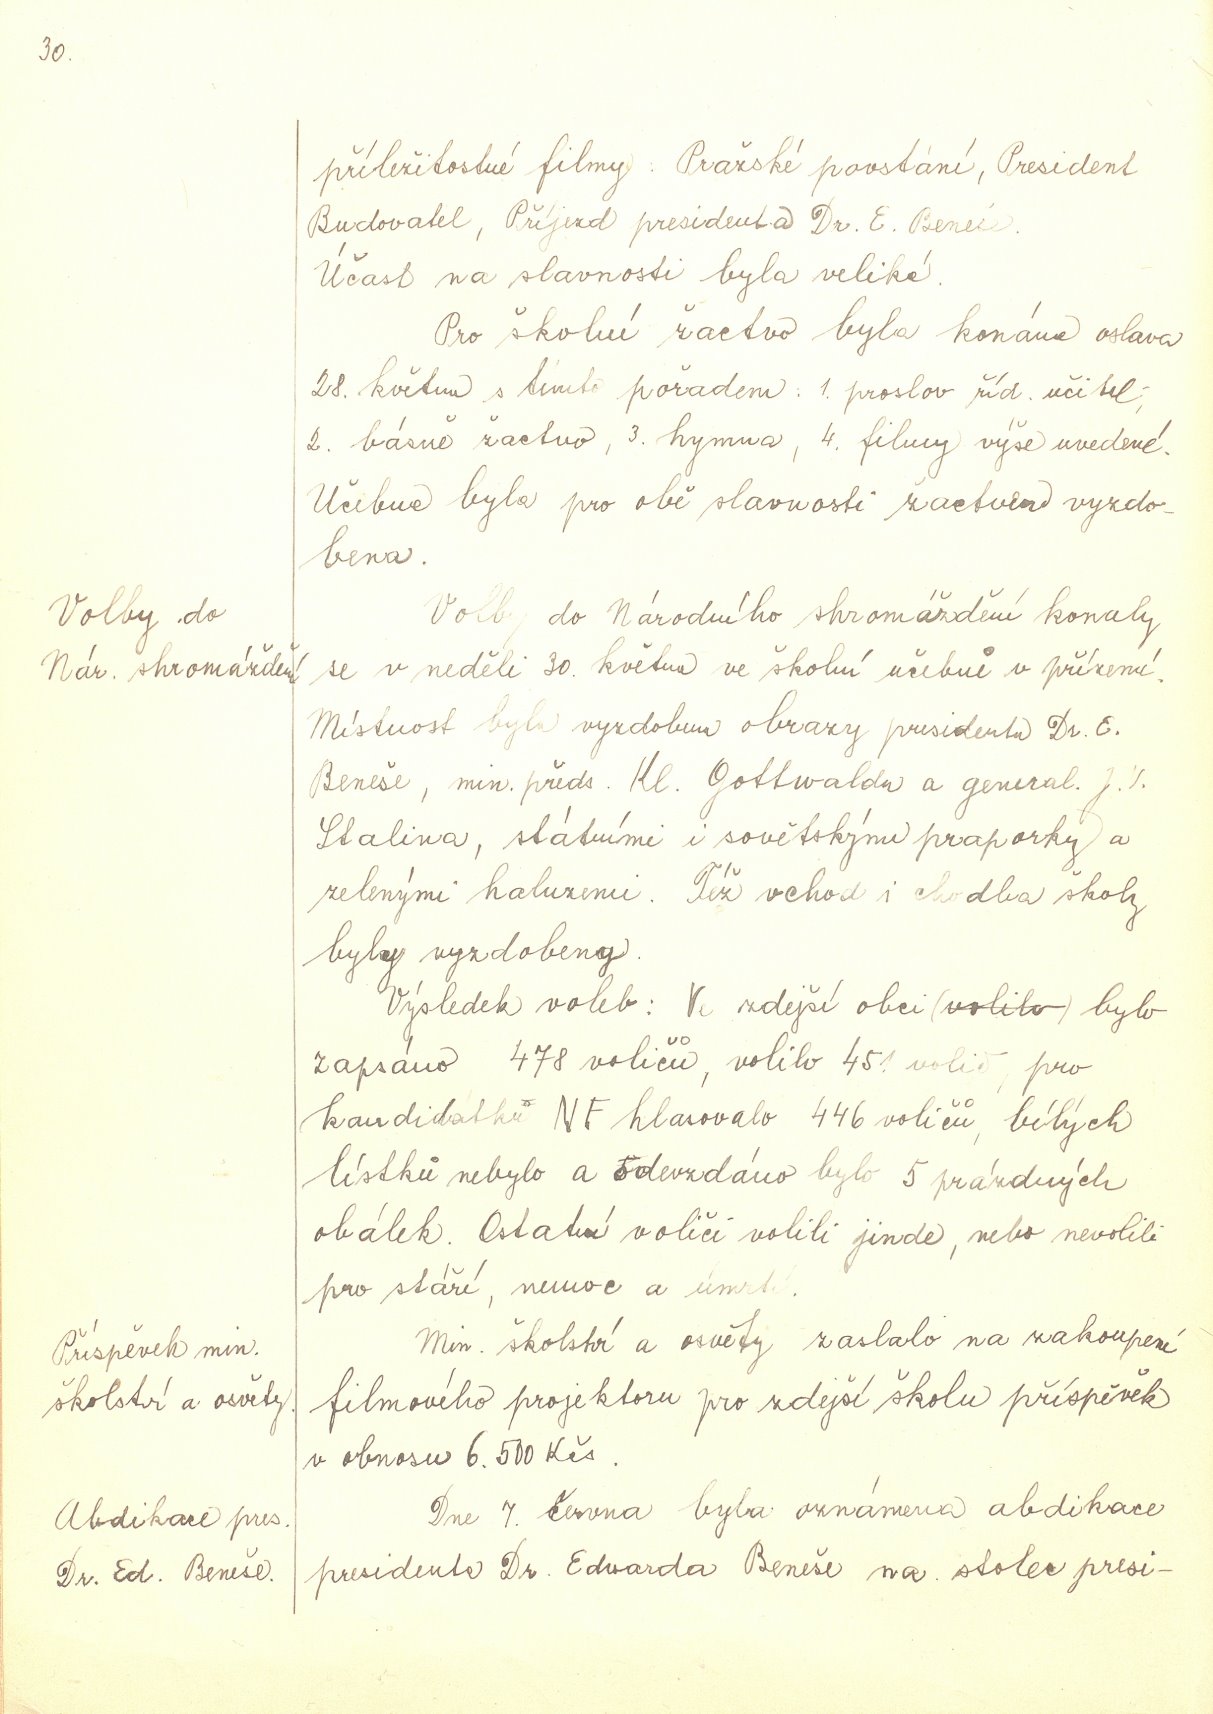 30.
příležitostné filmy: Pražské povstání, President
Budovatel, Příjezd presidenta Dr. E. Beneše.
Účast na slavnosti byla veliká.
Pro školní žactvo byla konána oslava
28. května s tímto pořadem: 1. proslov říd. učitel,
2. básně žactvo, 3. hymna, 4. filmy výše uvedené.
Učebna byla pro obě slavnosti žactvem vyzdo-
bena.
Volby do
Nár. shromáždění
Volby do Národního shromáždění konaly
se v neděli 30. května ve školní učebně v přízemí.
Místnost byla vyzdobena obrazy presidenta Dr. E.
Beneše, min. předs. Kl. Gottwalda a general. J. V.
Stalina, státními i sovětskými praporky a
zelenými haluzemi. Též vchod i chodba školy
byly vyzdobeny.
Výsledek voleb: Ve zdejší obci (volilo) bylo
zapsáno 478 voličů, volilo 451 volič, pro
kandidátku NF hlasovalo 446 voličů, bílých
lístků nebylo a odevzdáno bylo 5 prázdných
obálek. Ostatní voliči volili jinde, nebo nevolili
pro stáří, nemoc a úmrtí.
Příspěvek min.
školství a osvěty.
Min. školství a osvěty zaslalo na zakoupení
filmového projektoru pro zdejší školu příspěvěk
v obnosu 6.500 Kčs.
Abdikace pres.
Dr. Ed. Beneše.
Dne 7. června byla oznámena abdikace
presidenta Dr. Edwarda Beneše na stolec presi-